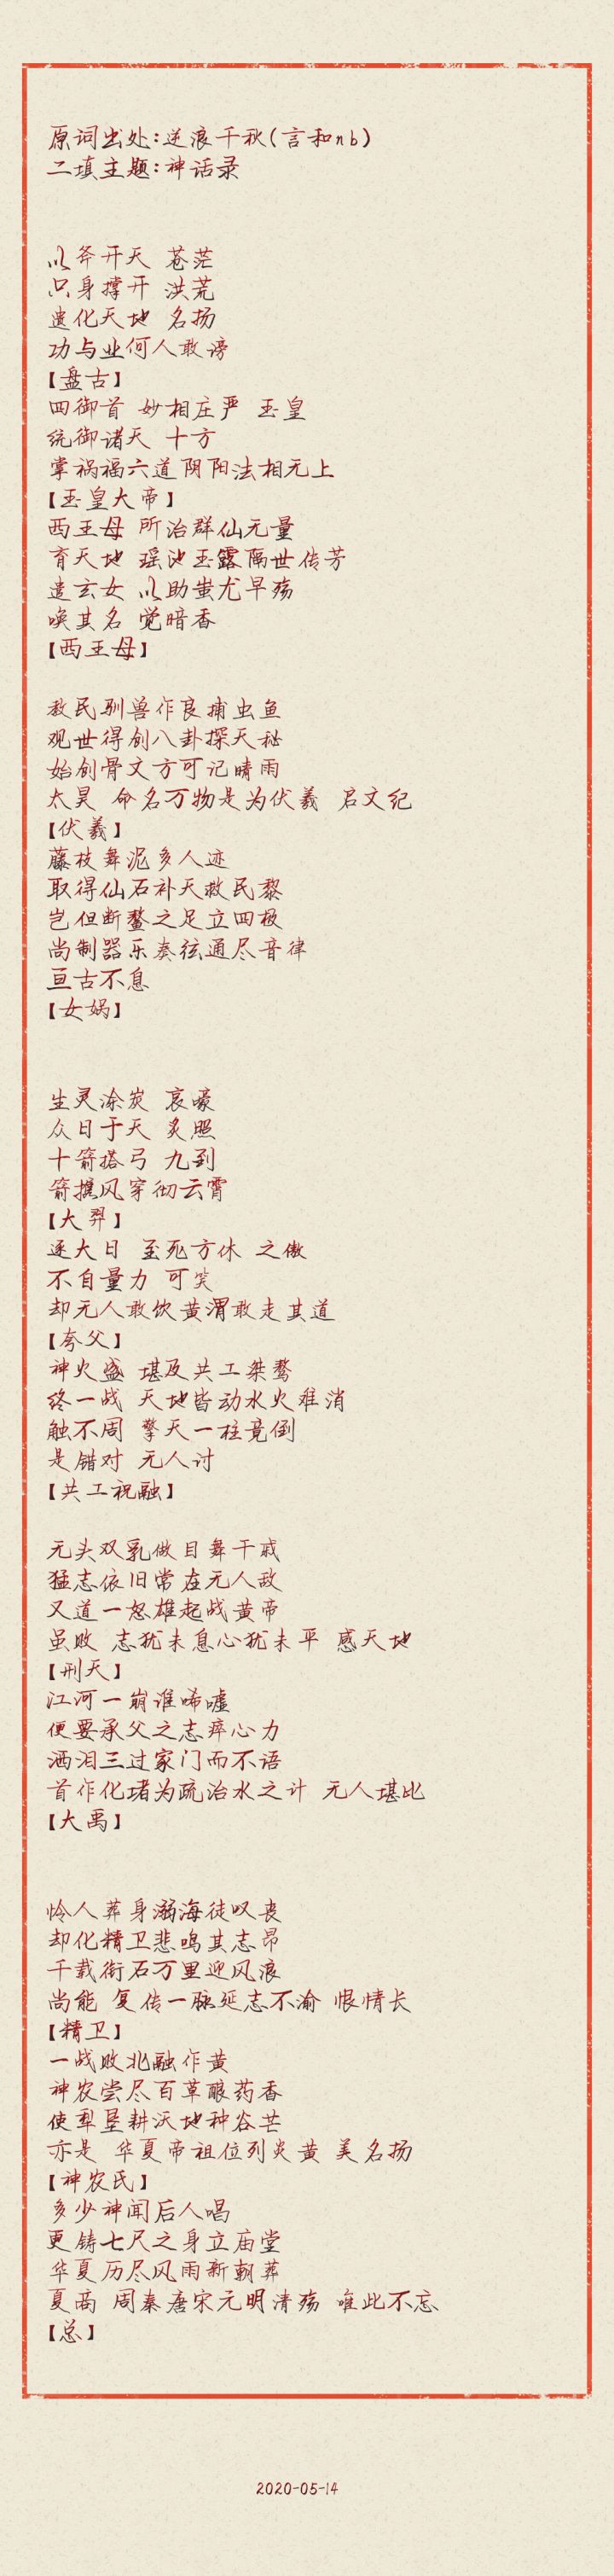 原词出处:逆浪千秋(言和nb)
二填主题:神话录
以斧开天 苍茫
只身撑开 洪荒
遗化天地 名扬
功与业何人敢谤
【盘古】
四御首 妙相庄严 玉皇
统御诸天 十方
掌祸福六道阴阳法相无上
【玉皇大帝】
西王母 所治群仙无量
育天地 瑶池玉露隔世传芳
遣玄女 以助蚩尤早殇
唤其名 觉暗香
【西王母】
教民驯兽作良捕虫鱼
观世得创八卦探天秘
始创骨文方可记晴雨
太昊 命名万物是为伏羲 启文纪
【伏羲】
藤枝舞泥多人迹
取得仙石补天救民黎
岂但断鳌之足立四极
尚制器乐奏弦通尽音律
亘古不息
【女娲】
生灵涂炭 哀嚎
众日于天 炙照
十箭搭弓 九到
箭携风穿彻云霄
【大羿】
逐大日 至死方休 之傲
不自量力 可笑
却无人敢饮黄渭敢走其道
【夸父】
神火盛 堪及共工桀骜
终一战 天地皆动水火难消
触不周 擎天一柱竟倒
是错对 无人讨
【共工祝融】
无头双乳做目舞干戚
猛志依旧常在无人敌
又道一怒雄起战黄帝
虽败 志犹未息心犹未平 感天地
【刑天】
江河一崩谁唏嘘
便要承父之志瘁心力
洒泪三过家门而不语
首作化堵为疏治水之计 无人堪比
【大禹】
怜人葬身溺海徒叹丧
却化精卫悲鸣其志昂
千载衔石万里迎风浪
尚能 复传一脉延志不渝 恨情长
【精卫】
一战败北融作黄
神农尝尽百草酿药香
使犁垦耕沃地种谷芒
亦是 华夏帝祖位列炎黄 美名扬
【神农氏】
多少神闻后人唱
更铸七尺之身立庙堂
华夏历尽风雨新朝葬
夏商 周秦唐宋元明清殇 唯此不忘
【总】
2020-05-14